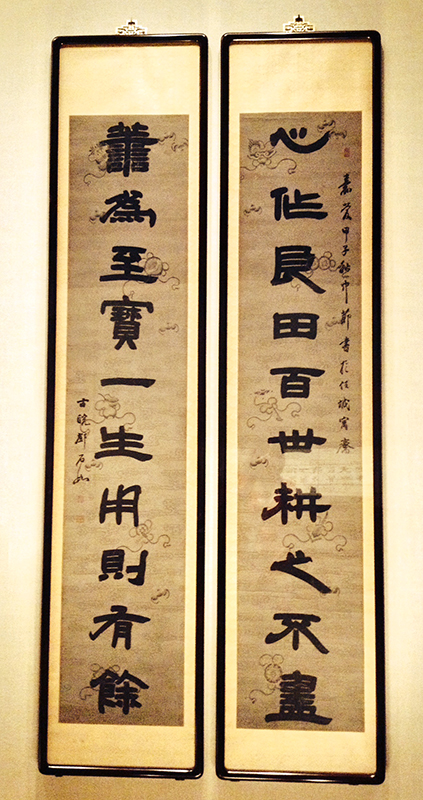 心作良田百世耕之不盡
嘉慶甲子秋中節書於任城寓廬
譱為至寶一生用則有餘
古皖鄧石如